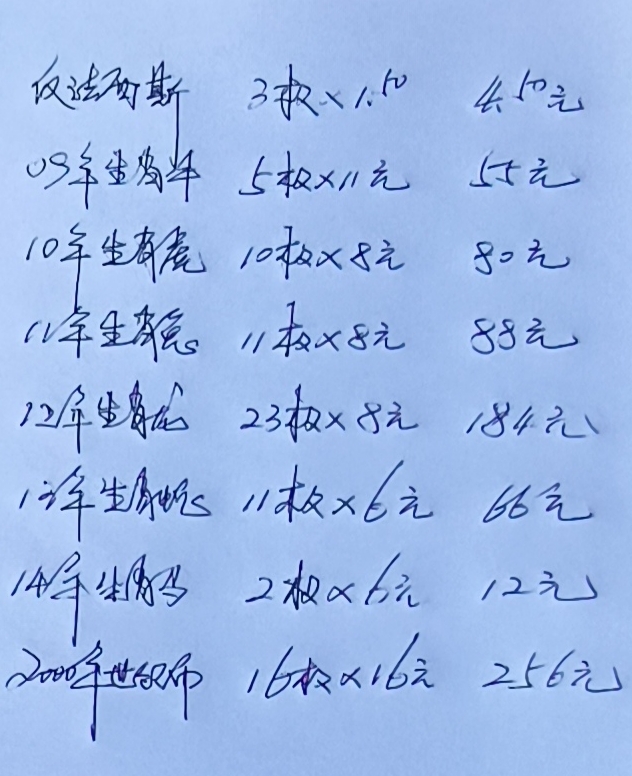 反法西斯 3枚×1.50 4.50元
09年生肖牛 5枚×11元 55元
10年生肖虎 10枚×8元 80元
11年生肖兔 11枚×8元 88元
12年生肖龙 23枚×8元 184元
13年生肖蛇 11枚×6元 66元
14年生肖马 2枚×6元 12元
2000年世纪币 16枚×16元 256元